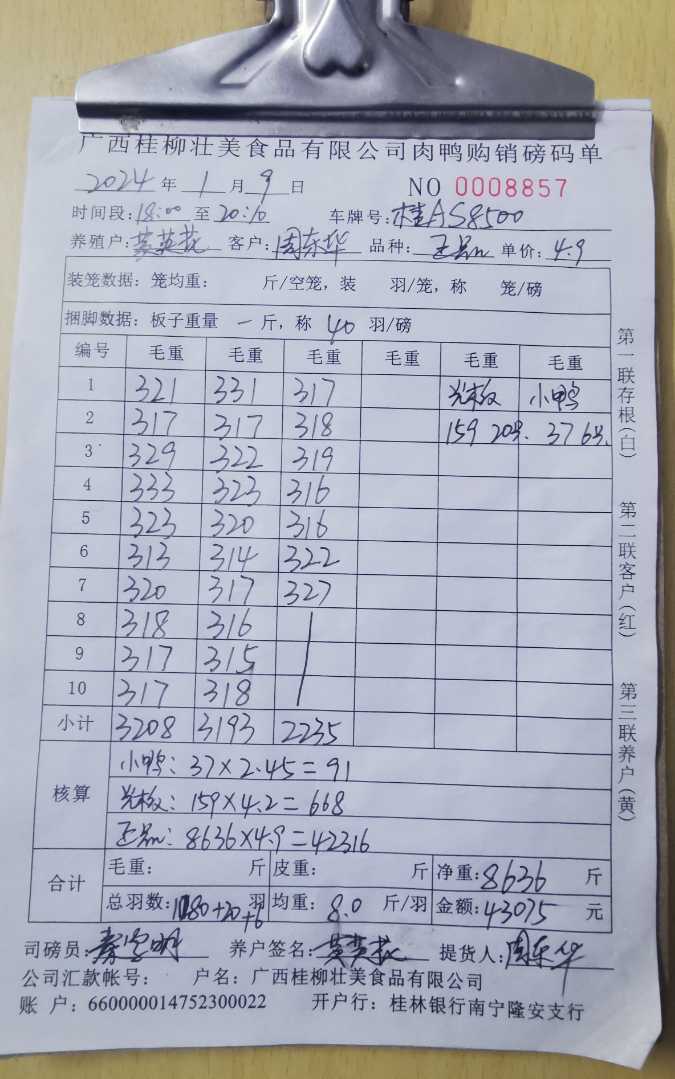 广西桂柳壮美食品有限公司肉鸭购销磅码单
2024年1月9日 NO 0008857
时间段:18:00至20:10 车牌号:桂AS8500
养殖户:黄英花 客户:周东华 品种:正品 单价:4.9
装笼数据:笼均重: 斤/空笼,装 羽/笼,称 笼/磅
捆脚数据:板子重量 一 斤,称 40 羽/磅
编号 毛重 毛重 毛重 毛重 毛重 毛重
1 321 331 317 光板 小鸭
2 317 317 318 159 20只. 37 6只.
3 329 322 319
4 333 323 316
5 323 320 316
6 313 314 322
7 320 317 327
8 318 316
9 317 315
10 317 318
小计 3208 3193 2235
核算
小鸭:37×2.45=91
光板:159×4.2=668
正品:8636×4.9=42316
合计
毛重: 斤 皮重: 斤 净重:8636 斤
总羽数:1080+20+6 羽 均重:8.0 斤/羽 金额:43075 元
司磅员: 养户签名:黄英花 提货人:周东华
公司汇款帐号: 户名:广西桂柳壮美食品有限公司
账 户:660000014752300022 开户行:桂林银行南宁隆安支行
第一联存根(白)
第二联客户(红)
第三联养户(黄)